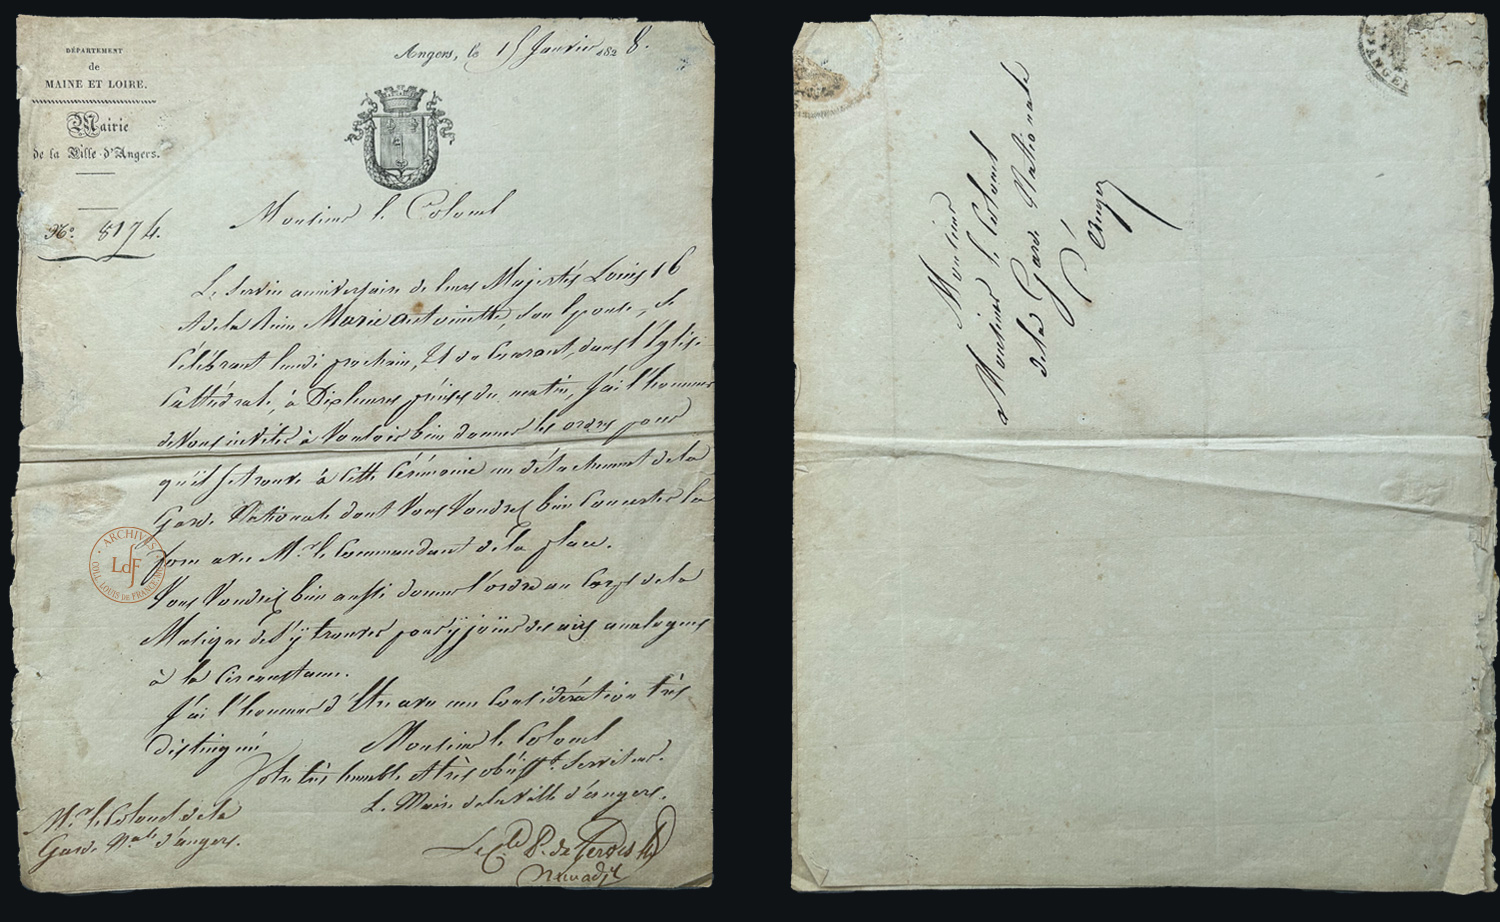 DÉPARTEMENT
de
MAINE ET LOIRE.
Mairie
de la Ville d'Angers.
Angers, le 15 Janvier 1828.
N.º 8174.
Monsieur le Colonel
Le Service anniversaire de leurs Majestés Louis 16
et de la Reine Marie Antoinette, son Epouse, se
Célébrant lundi prochain, 21 du Courant, dans l'Eglise
Cathédrale, à Dix heures précises du matin, J'ai l'honneur
de vous inviter à Vouloir bien donner les ordres pour
qu'il se trouve à Cette Cérémonie un détachement de la
Garde Nationale dont Vous Voudrez bien Concerter la
force avec Mr. le Commandant de la place.
Vous Voudrez bien aussi donner l'ordre au Corps de la
Musique de s'y trouver pour y joüer des airs analogues
à la Circonstance.
J'ai l'honneur d'Etre avec une Considération très
distinguée
Monsieur le Colonel
Votre très humble et très obéisst. Serviteur.
Le Maire de la Ville d'angers,
Mr. le Colonel de la
Garde Nale d'angers.
ARCHIVES
LdF
COLL. LOUIS DE FRANCE
Monsieur
Monsieur le Colonel
de la Garde Nationale
D'Angers
ANGERS